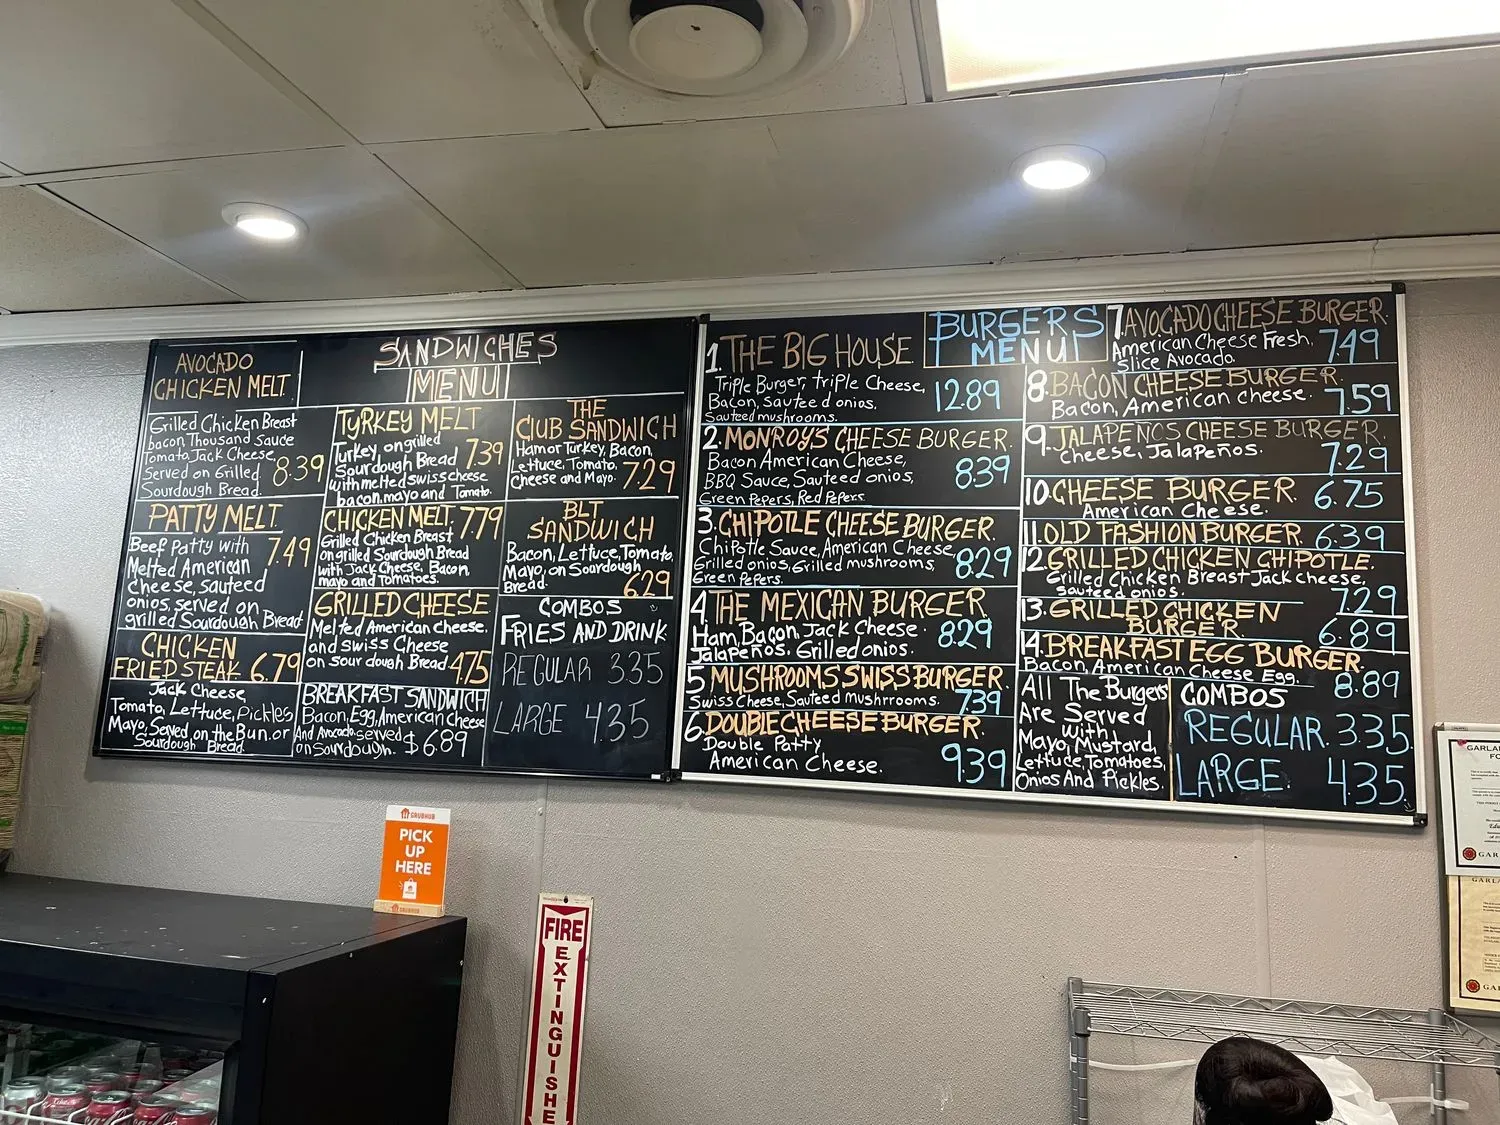 SANDWICHES
MENU
AVOCADO
CHICKEN MELT
Grilled Chicken Breast
bacon, Thousand Sauce
Tomato, Jack Cheese,
Served on Grilled
Sourdough Bread.
8.39
PATTY MELT
Beef Patty with
Melted American
Cheese, sauteed
onios, served on
grilled Sourdough Bread
7.49
CHICKEN
FRIED STEAK 6.79
Jack Cheese
Tomato, Lettuce, Pickles
Mayo, Served, on the Bun. or
Sourdough Bread.
TURKEY MELT
Turkey, on grilled
Sourdough Bread
with melted swiss cheese
bacon, mayo and Tomato.
7.39
CHICKEN MELT 7.79
Grilled Chicken Breast
on grilled Sourdough Bread
with Jack Cheese, Bacon,
mayo and Tomatoes.
GRILLED CHEESE
Melted American Cheese.
and swiss Cheese
on sour dough Bread 4.75
BREAKFAST SANDWICH
Bacon, Egg, American Cheese
And Avocado, served
on Sourdough. $6.89
THE
CLUB SANDWICH
Ham or Turkey, Bacon,
Lettuce, Tomato,
Cheese and Mayo. 7.29
BLT
SANDWICH
Bacon, Lettuce, Tomato,
Mayo, on Sourdough
Bread.
6.29
COMBOS
FRIES AND DRINK
REGULAR 3.35
LARGE 4.35
BURGERS
MENU
1. THE BIG HOUSE
Triple Burger, triple Cheese,
Bacon, sauteed onios.
Sauteed mushrooms.
12.89
2. MONROY'S CHEESE BURGER.
Bacon American Cheese,
BBQ Sauce, Sauteed onios,
Green Pepers, Red Pepers
8.39
3. CHIPOTLE CHEESE BURGER.
Chipotle Sauce, American Cheese
Grilled onios, Grilled mushrooms
Green Pepers.
8.29
4 THE MEXICAN BURGER
Ham, Bacon, Jack Cheese.
Jalapeños, Grilled onios.
8.29
5 MUSHROOMS SWISS BURGER.
Swiss Cheese, Sauteed mushrrooms.
7.39
6. DOUBLE CHEESE BURGER.
Double Patty
American Cheese.
9.39
7. AVOCADO CHEESE BURGER.
American Cheese Fresh,
Slice Avocado.
7.49
8. BACON CHEESE BURGER.
Bacon, American cheese.
7.59
9. JALAPEÑOS CHEESE BURGER.
cheese, Jalapeños.
7.29
10. CHEESE BURGER. 6.75
American Cheese.
11. OLD FASHION BURGER. 6.39
12. GRILLED CHICKEN CHIPOTLE.
Grilled Chicken Breast Jack cheese,
sauteed onios.
7.29
13. GRILLED CHICKEN
BURGER. 6.89
14. BREAKFAST EGG BURGER.
Bacon, American Cheese Egg.
8.89
All The Burgers
Are Served
with
Mayo, Mustard,
Lettuce, Tomatoes,
Onios And Pickles.
COMBOS
REGULAR. 3.35
LARGE. 4.35
GRUBHUB
PICK
UP
HERE
GRUBHUB
FIRE
EXTINGUISHE
GARLA
GAR
GARLA
GA